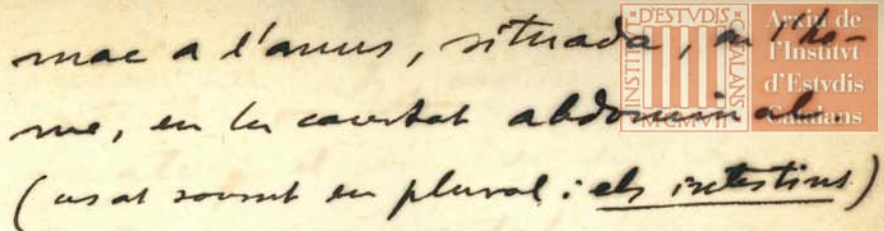 mac a l'anus, situada, en l'ho-
me, en la cavitat abdominal.
(usat sovint en plural: els intestins)
INSTITVT D'ESTVDIS CATALANS
MCMVII
Arxiu de
l'Institvt
d'Estvdis
Catalans